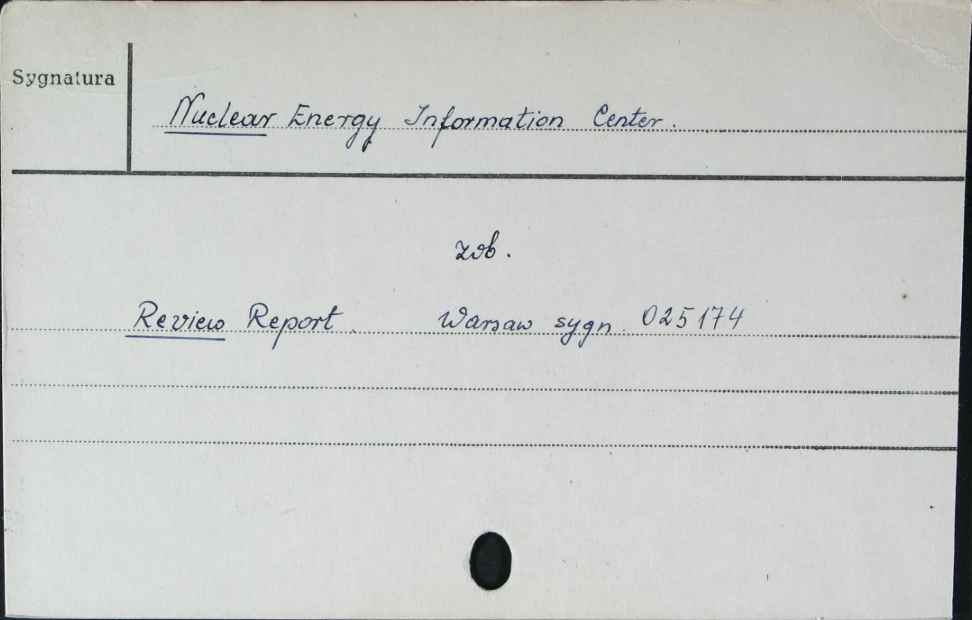 Sygnatura
Nuclear Energy Information Center.
zob.
Review Report. Warsaw sygn. 025174